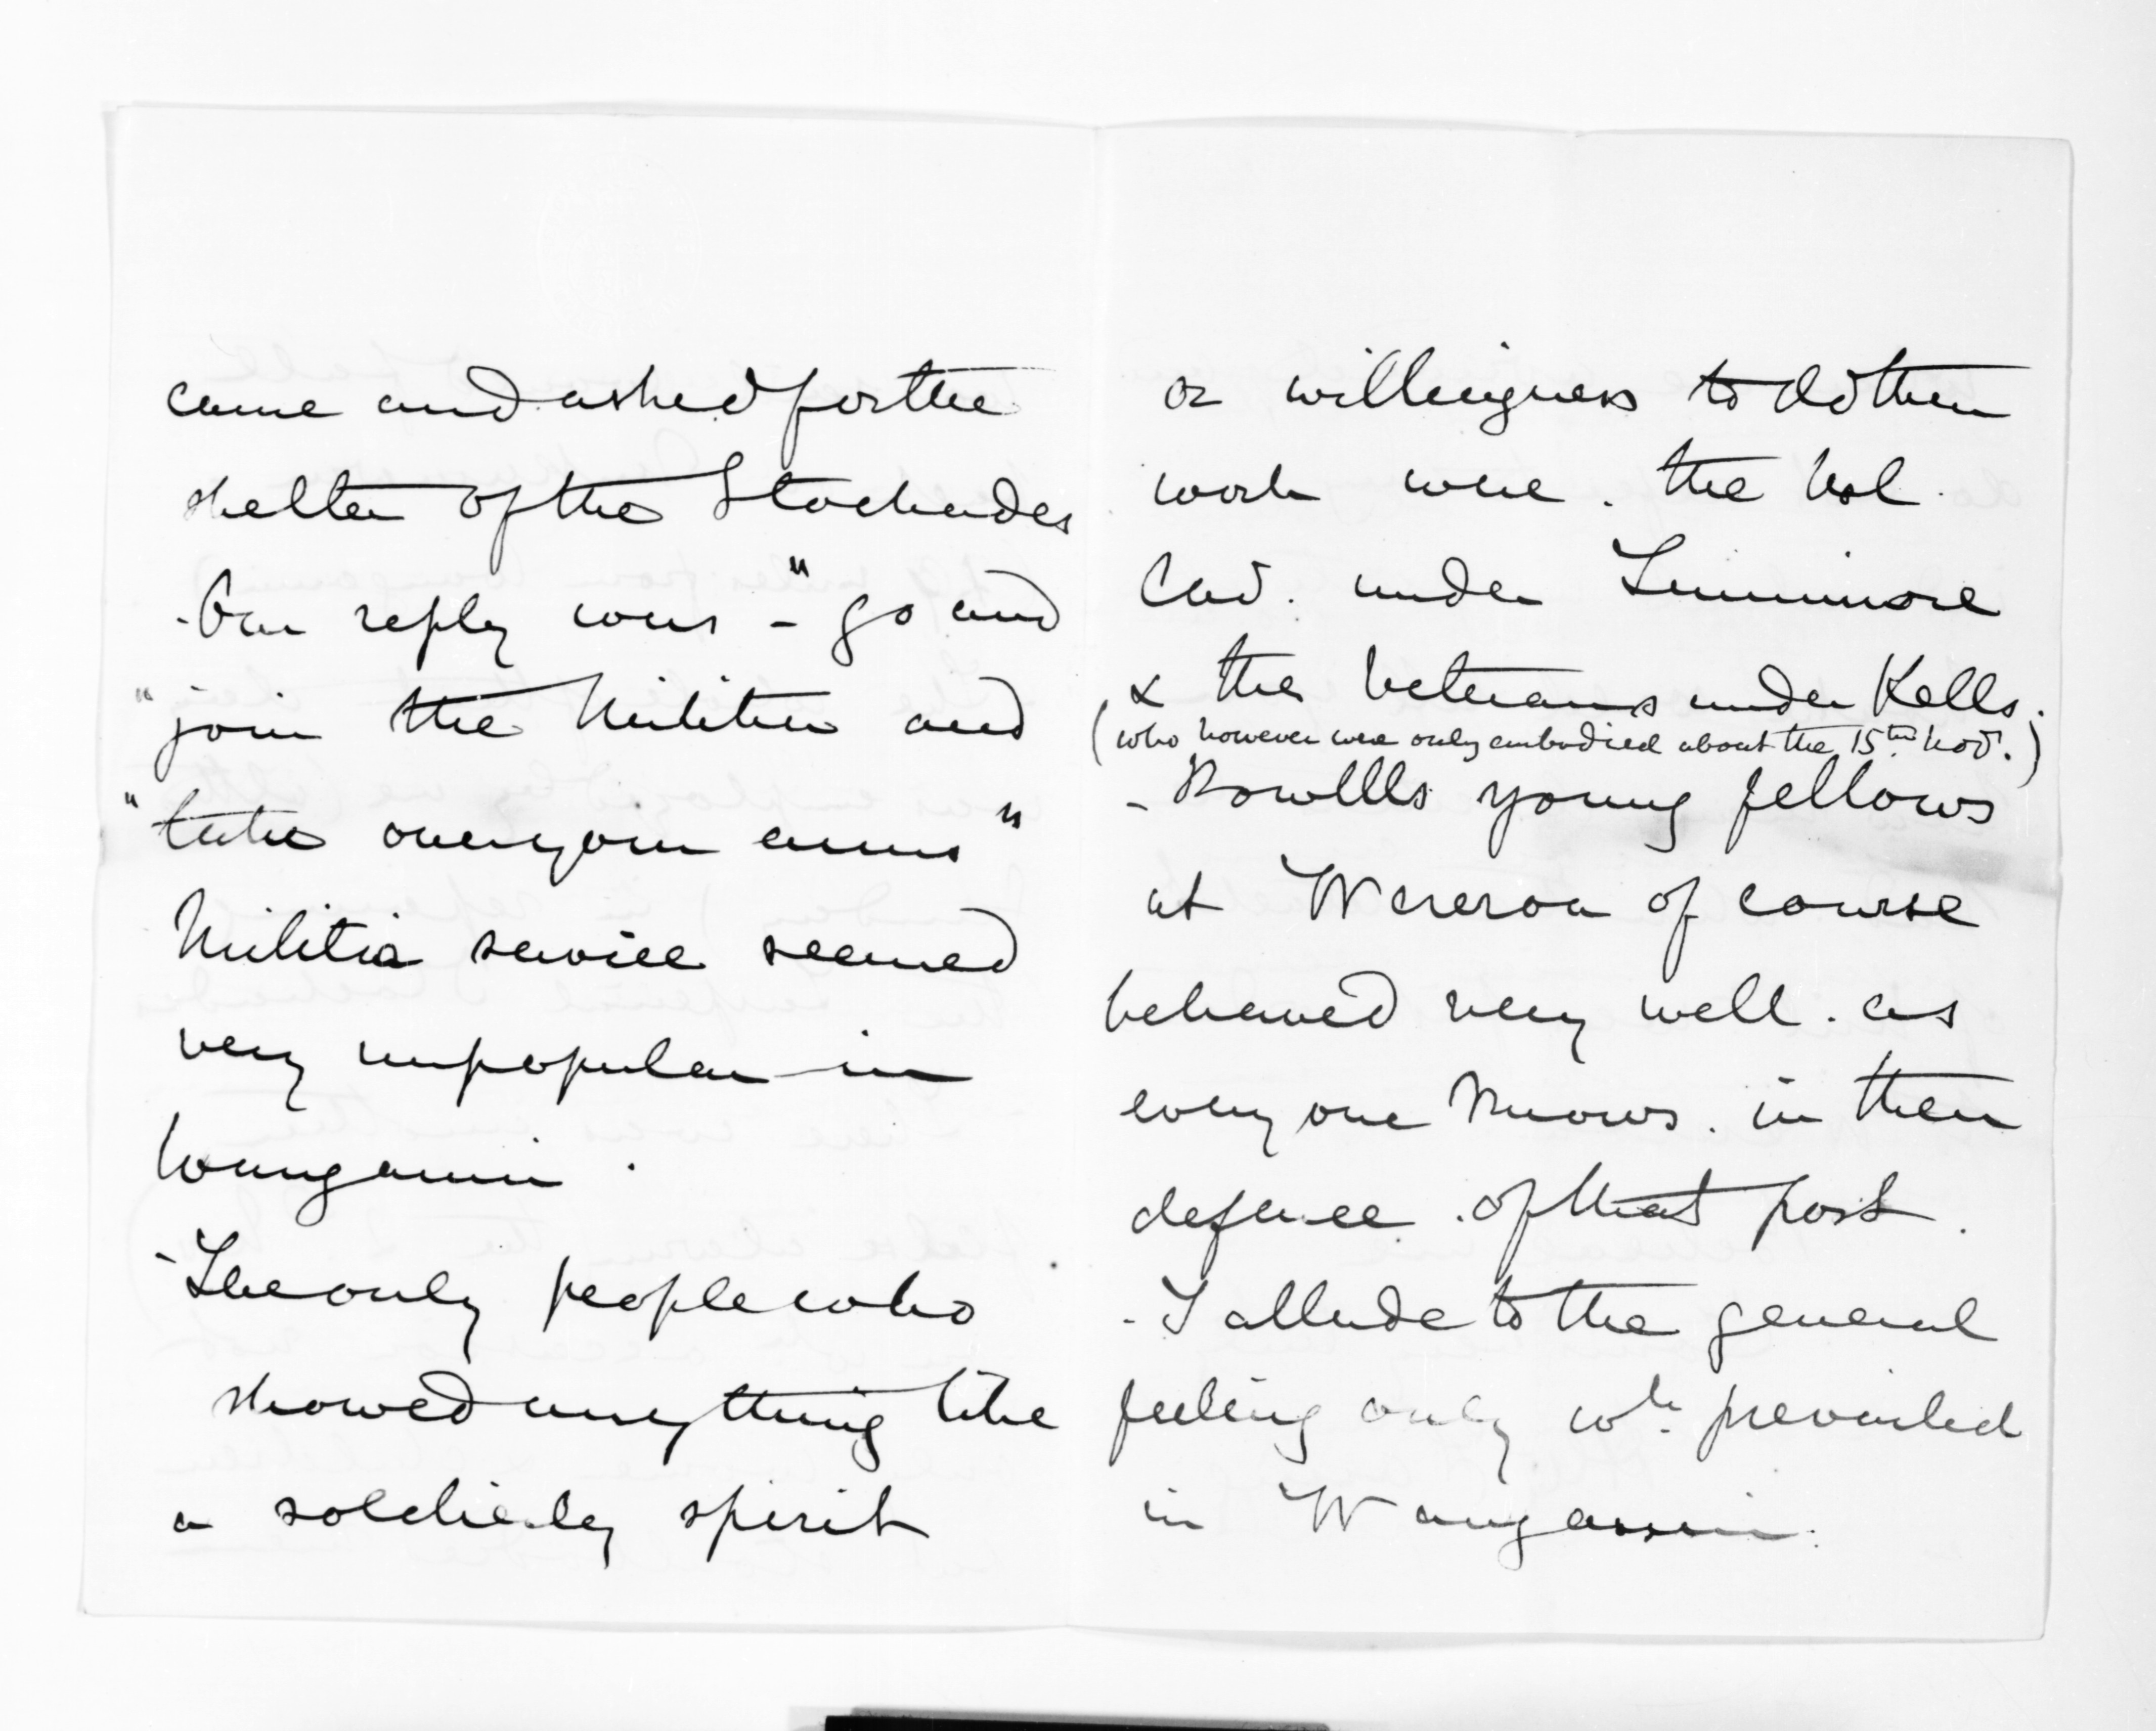 came and asked for the
shelter of the Stockades
- Our reply was - "go and
"join the Militia and
"take over your arms"
Militia service seemed
very unpopular in
Wanganui.
- The only people who
showed anything like
a soldierly spirit
or willingness to do their
work were. the Vol.
Cav. under Finnimore
& the Veterans under Kells.
(who however were only embodied about the 15th Nov.)
- Powlls young fellows
at Wereroa of course
behaved very well. as
every one knows. in their
defence. of that post.
- I allude to the general
feeling only wh. prevailed
in Wanganui.